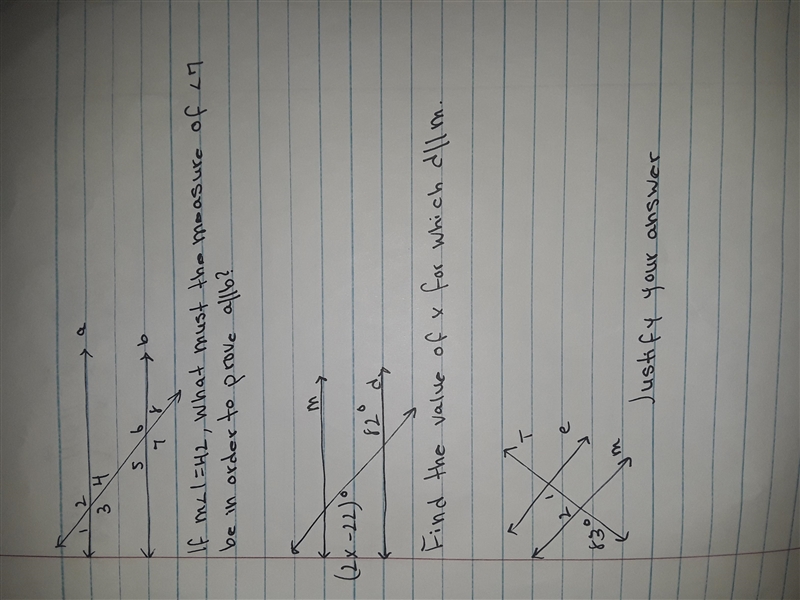 a
1 2
3 4
b
5 6
7 8
If m<1=42, What must the measure of <7
be in order to prove a//b?
m
(2x-22)° 82°
d
Find the value of x for which d//m.
T
e
1
2
m
83°
Justify your answer